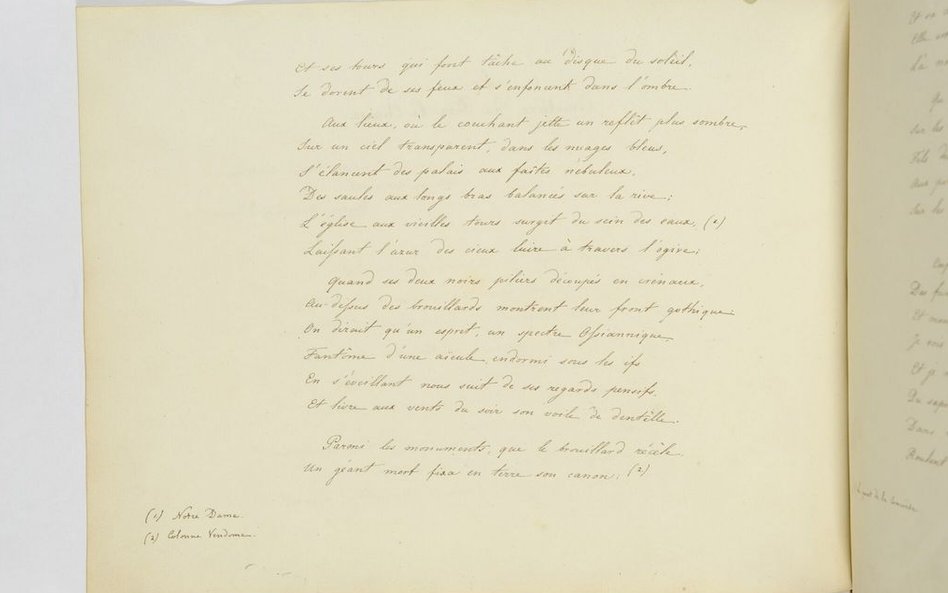 Et ses tours qui font tâche au disque du soleil,
Se dorent de ses feux et s'enfoncent dans l'ombre.
Aux lieux, où le couchant jette un reflêt plus sombre,
Sur un ciel transparent, dans les nuages bleus,
S'élancent des palais aux faîtes nébuleux,
Des saules aux longs bras balancés sur la rive;
L'église aux vieilles tours surgit du sein des eaux, (1)
Laissant l'azur des cieux luire à travers l'ogive;
Quand ses deux noirs piliers découpés en crénaux,
Au-dessus des brouillards montrent leur front gothique:
On diroit qu'un esprit un spectre Ossiannique,
Fantôme d'une aïeule, endormi sous les ifs
En s'éveillant nous suit de ses regards pensifs,
Et livre aux vents du soir son voile de dentelle.
Parmi les monuments, que le brouillard récèle,
Un géant mort fixa en terre son canon; (2)
(1) Notre Dame.
(2) Colonne Vendome.
Et
Elle
Là
Sur les
Et
je vois
Et je
Dans